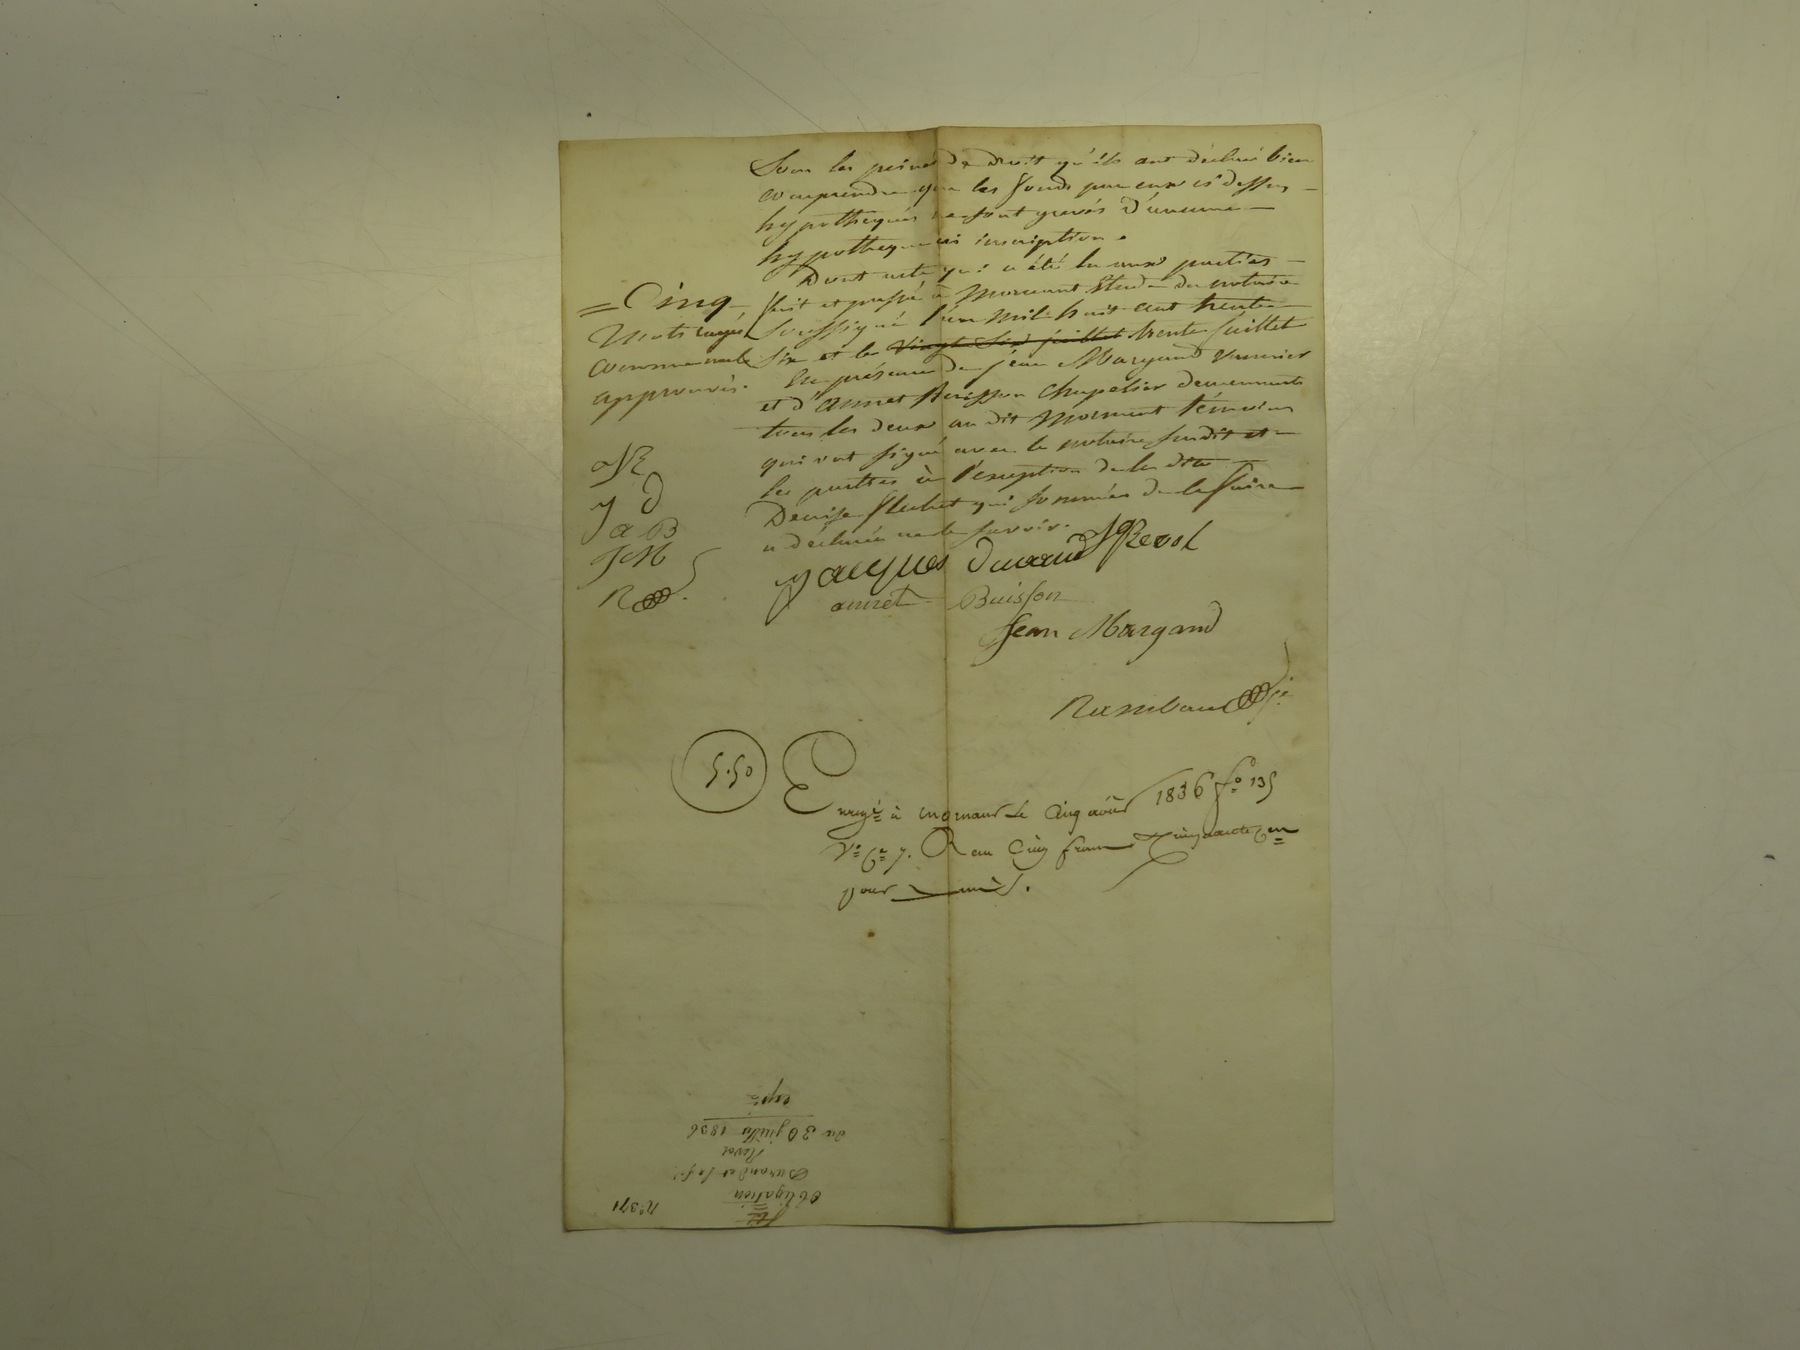 Sous les peines de droit qu'ils ont déclaré bien
comprendre que les fonds par eux ci dessus
hypothequés ne sont grevés d'aucune
hypotheque ni inscription.
Dont acte qui a été lu aux parties
fait et passé à Mornant Etude du notaire
soussigné l'an mil huit cent trente
six et le vingt six juillet trente juillet
En présence de jean Margand
et d'annet Buisson chapelier demeurants
tous les deux au dit Mornant témoins
qui ont signé avec le notaire susdit et
les parties à l'exception de la dite
Denise qui sommée de le faire
a déclaré ne le savoir.
= Cinq
mots rayés
comme nuls
approuvés.
JR
J D
a B
JM
R
jacques durand JRevol
annet Buisson
Jean Margand
Rambaud
5.50
Enregé à mornant le Cinq août 1836 fo 135
Vo Ce 7. Reçu Cinq francs Cinquante cen
pour
No 371
Obligation
Durand et sa fe
Revol
du 30 juillet 1836
expé